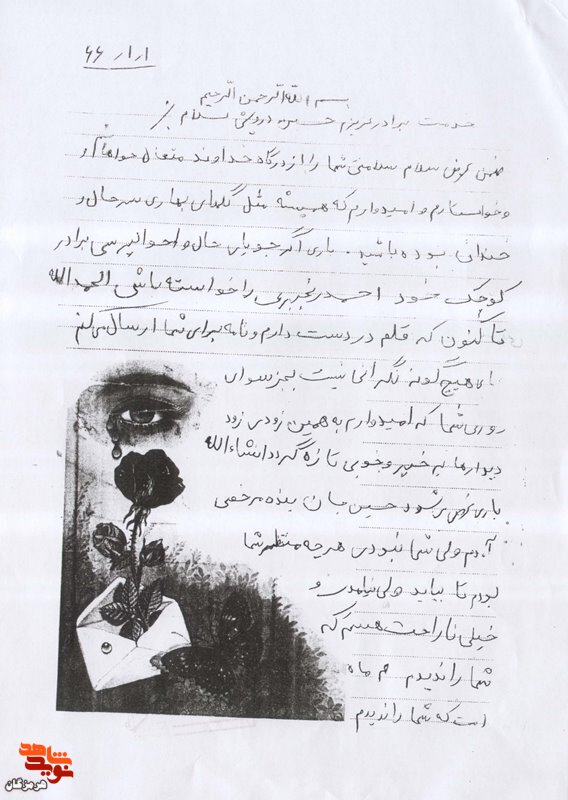 ۶۶ ار۱ر
بسم الله الرحمن الرحیم
خدمت برادر عزیزم حسین درویشی سلام
ضمن عرض سلام سلامتی شما را از درگاه خداوند متعال خواهانم و
و خواستارم و امیدوارم که همیشه مثل گلهای بهاری سرحال و
خندان بوده باشید. باری اگر جویای حال و احوالپرسی برادر
کوچک خود احمد رنجبری را خواسته باشی الحمدالله
تا کنون که قلم در دست دارم و نامه برای شما ارسال میکنم
هیچ گونه نگرانی نیست بجز سوای
روری شما که امیدوارم به همین زودی زود
دیدارها به خیر و خوبی تازه گردد انشاءالله
باری عرض میشود حسین جان بنده مرخصی
آمدم ولی شما نبودی هرچه منتظر شما
بودم تا بیاید ولی نیامدی و
خیلی ناراحت هستم که
شما را ندیدم ۳ ماه
است که شما را ندیدم
نوید شاهد
هرمزگان